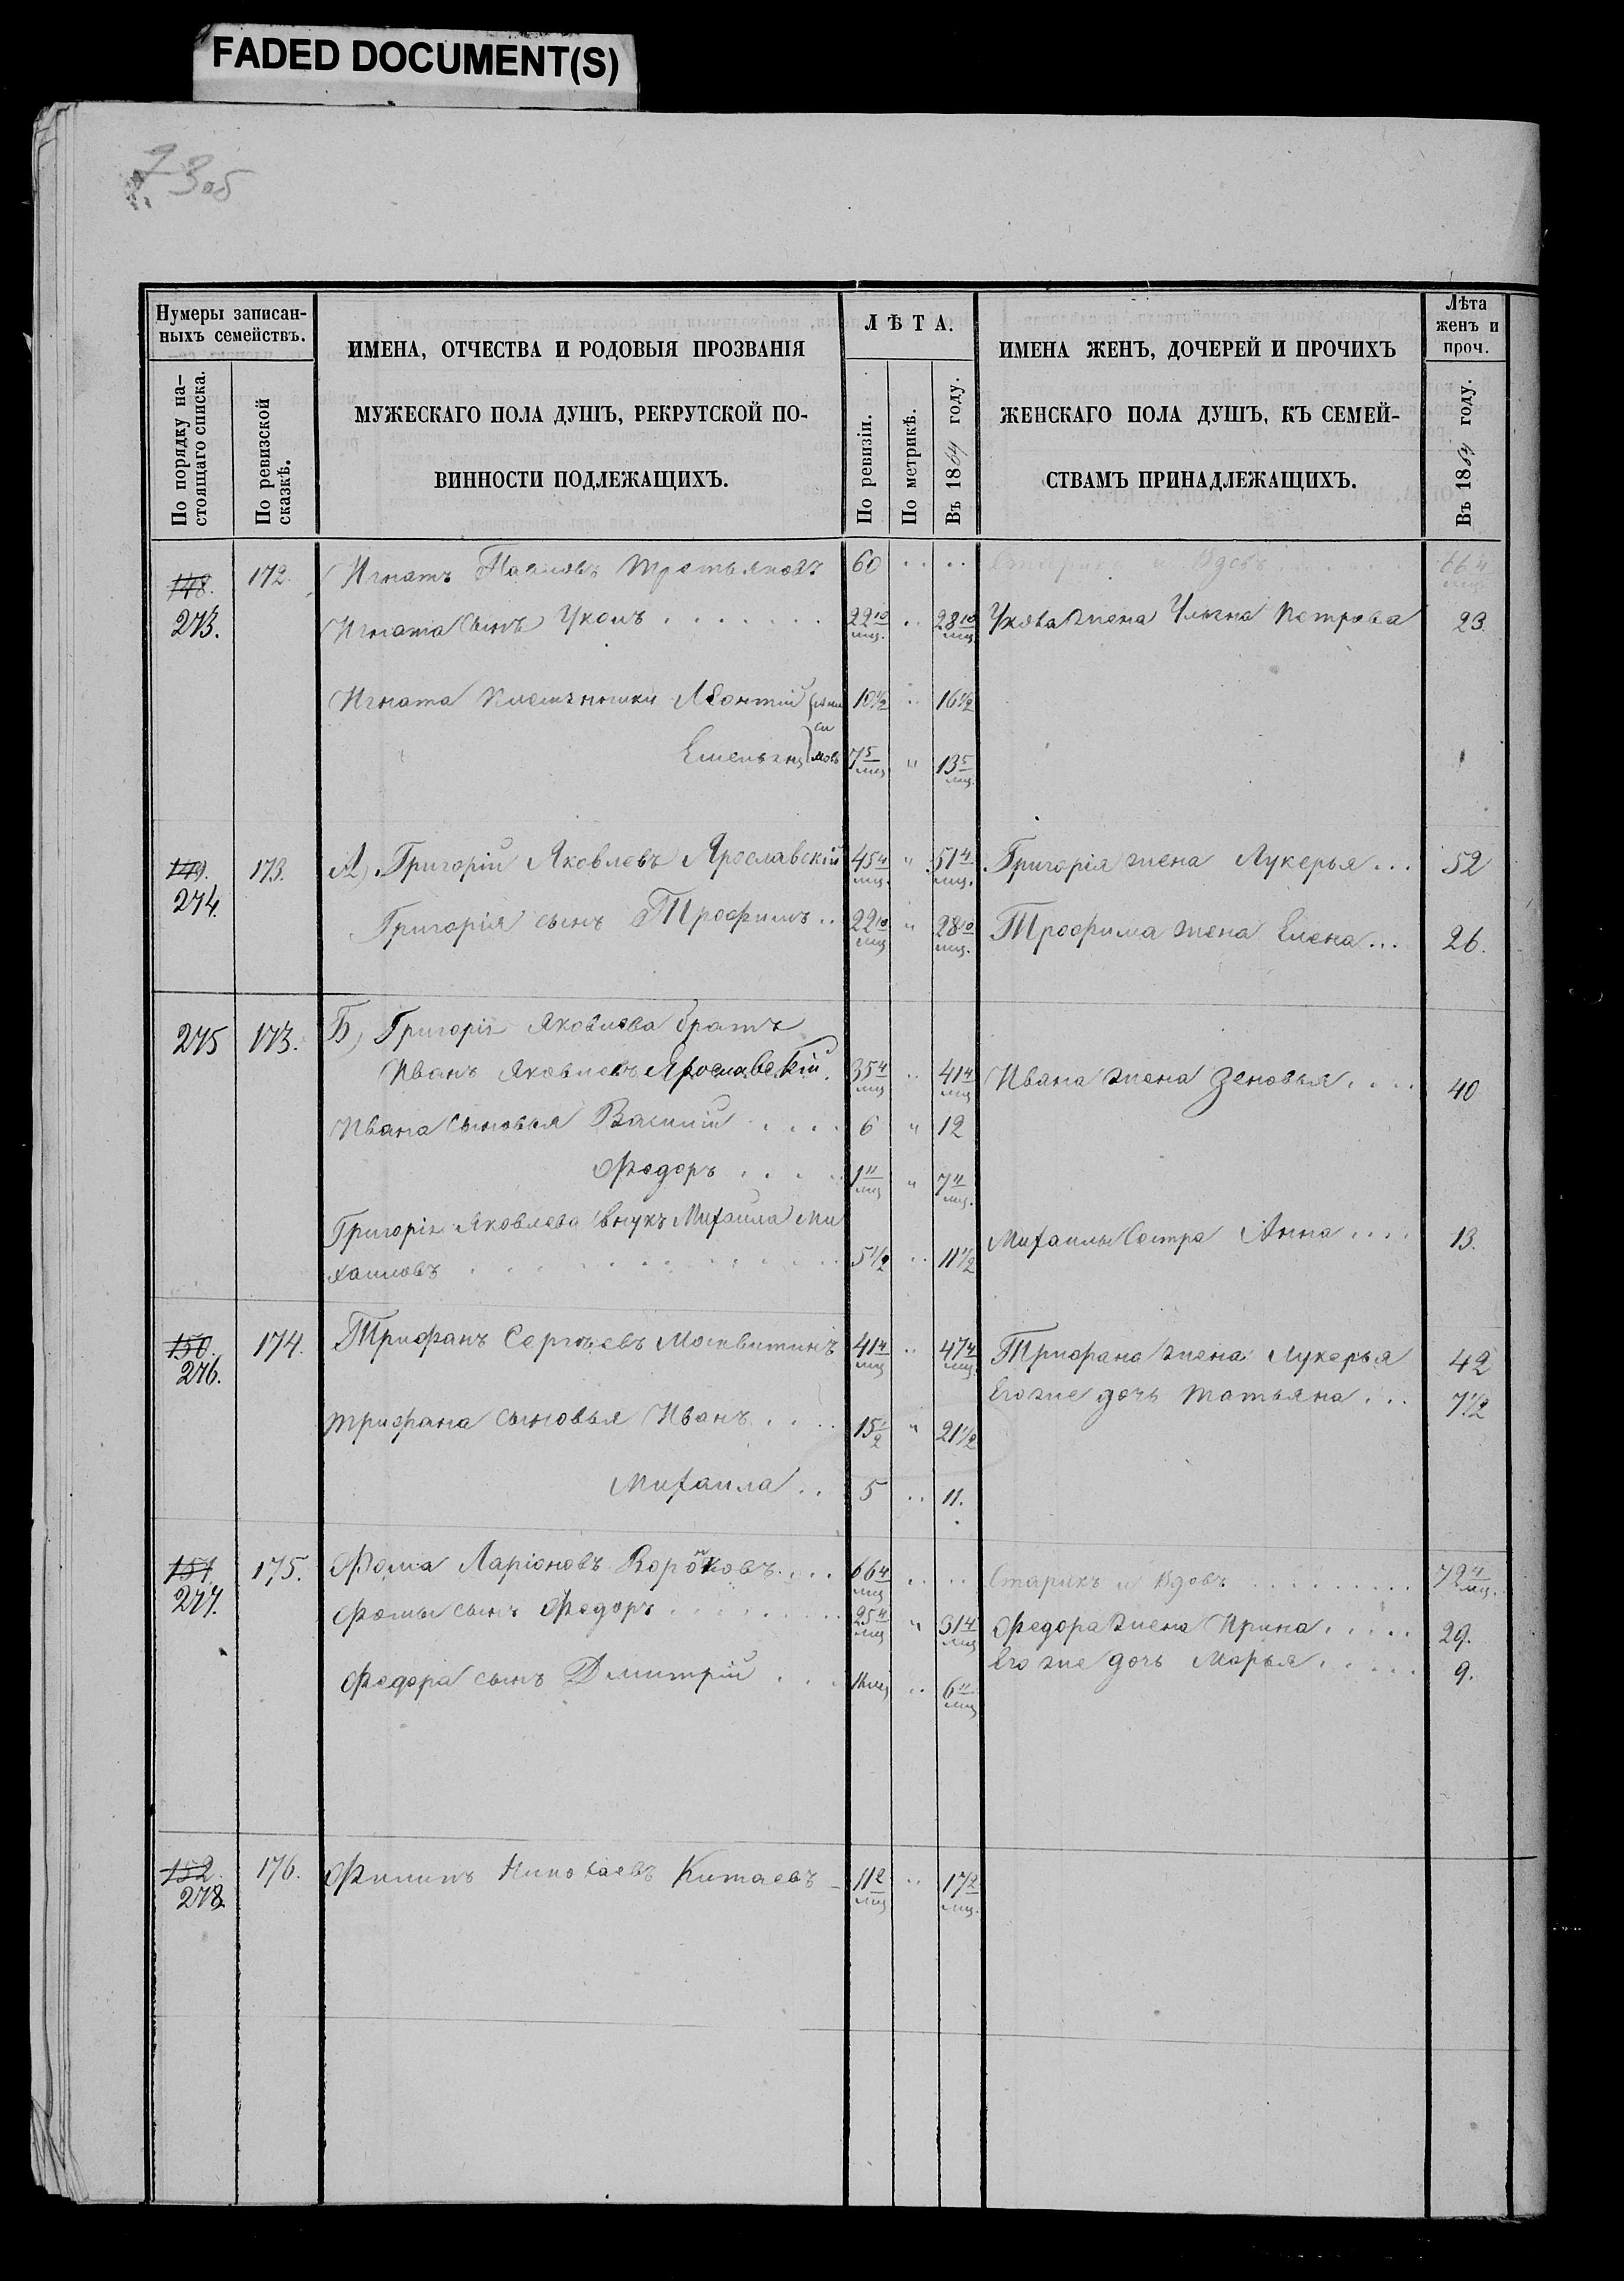 FADED DOCUMENT(S)
73об
Нумеры записан-
ныхъ семействъ.
По порядку на-
стоящаго списка.
По ревизской
сказкѣ.
ИМЕНА, ОТЧЕСТВА И РОДОВЫЯ ПРОЗВАНІЯ
МУЖЕСКАГО ПОЛА ДУШЪ, РЕКРУТСКОЙ ПО-
ВИННОСТИ ПОДЛЕЖАЩИХЪ.
ЛѢТА.
По ревизіи.
По метрикѣ.
Въ 1864 году.
ИМЕНА ЖЕНЪ, ДОЧЕРЕЙ И ПРОЧИХЪ
ЖЕНСКАГО ПОЛА ДУШЪ, КЪ СЕМЕЙ-
СТВАМЪ ПРИНАДЛЕЖАЩИХЪ.
Лѣта
женъ и
проч.
Въ 1864 году.
148. 172. Игнатъ Третьяковъ 60 .. .. Старикъ и Вдовъ 66 4 мц
273. Игната сынъ 22 10 мц. .. 28 10 мц жена Петрова 23.
Игната племянники Леонтій 10 1/2 .. 16 1/2
7 5 мц " 13 5 мц.
149. 173. А) Григорій Яковлевъ Ярославскій 45 4 мц. " 51 4 мц. Григорія жена Лукерья ... 52
274. Григорія сынъ Трофимъ .. 22 10 мц " 28 10 мц. Трофима жена Елена ... 26.
275 173. Б) Григорія Яковлева братъ
Иванъ Яковлевъ Ярославскій. 35 4 мц .. 41 4 мц Ивана жена Зеновья .... 40
Ивана сыновья Василій .... 6 " 12
Федоръ .... 1 11 мц " 7 11 мц.
Григорія Яковлева внукъ Михаила Ми
хаиловъ 5 1/2 .. 11 1/2 Михаилы сестра Анна .... 13.
150. 174. Трифанъ Сергѣевъ Москвитинъ 41 4 мц .. 47 4 мц. Трифана жена Лукерья 42
276. Его же дочь Татьяна ... 7 1/2
Трифана сыновья Иванъ .... 15 1/2 " 21 1/2
Михаила .. 5 .. 11.
151. 175. Фома Ларіоновъ .... 66 4 мц .. .. Старикъ и Вдовъ 72 4 мц.
277. Фомы сынъ Федоръ 25 4 мц " 31 4 мц Федора жена Ирина ..... 29.
Его же дочь Марья ..... 9.
Федора сынъ Дмитрій ... 11 мц .. 6 11 мц
152. 176. Филипъ Николаевъ Китаевъ 11 2 мц .. 17 2 мц.
278.